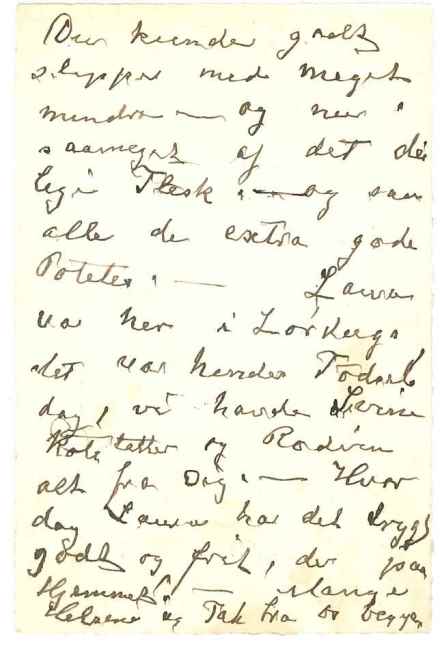 Du kunde godt
slippe med meget
mindre — og nu i
saameget af det dei
lige Flesk. — og saa
alle de extra gode
Poteter. — Laura
va her i Lørdags
det var hendes Fødsels
dag, vi havde Svine
Koteletter og Rødvin
alt fra Dig. — Hvor
dag Laura har det trygt
godt og frit, der paa
Hjemmet. — Mange
Helsene og Tak fra os begge